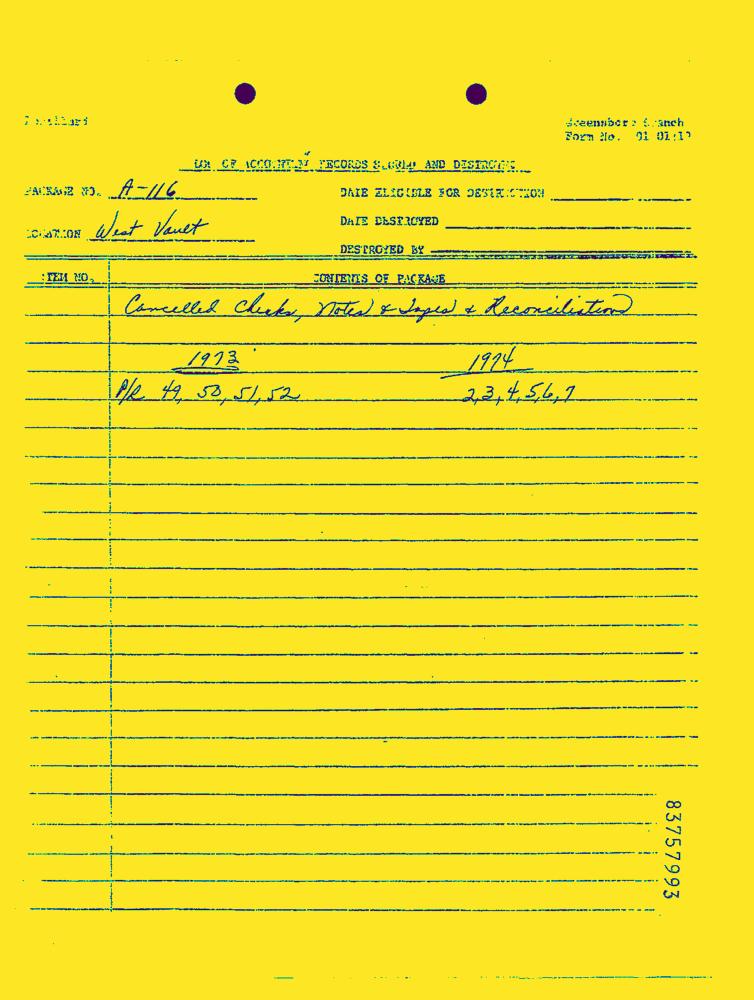 Lorillard
Greensboro Branch
Form No. 01 01:1?
LOG OF ACCOUNTING RECORDS STORED AND DESTROYED
PACKAGE NO. A-116
DATE ELIGIBLE FOR DESTRUCTION
LOCATION West Vault
DATE DESTROYED
DESTROYED BY
ITEM NO.
CONTENTS OF PACKAGE
Cancelled Checks, Notes & Tapes & Reconciliations
1973 1974
P/R 49, 50, 51, 52 2,3,4,5,6,7
83757993